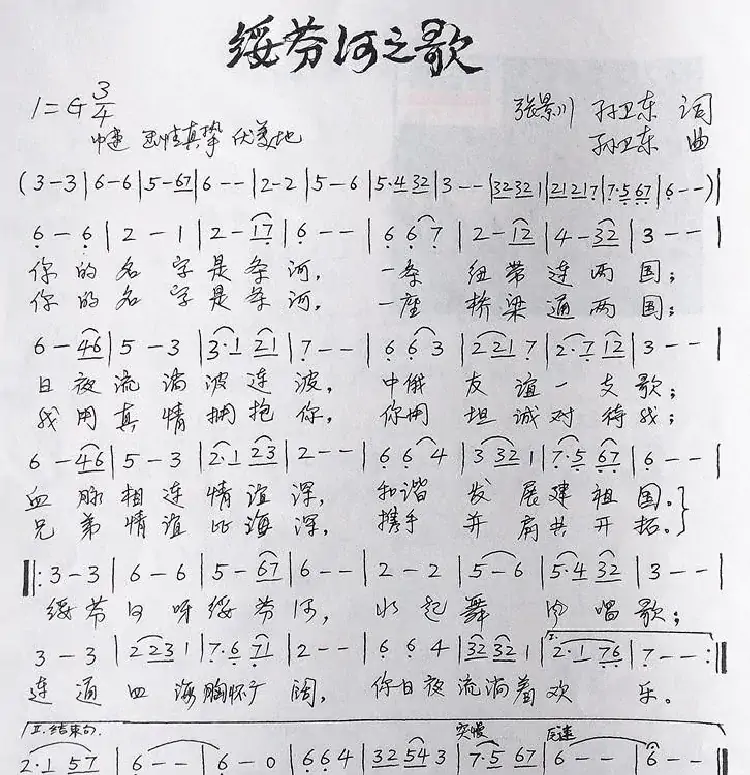 绥芬河之歌
1=G 3/4
中速 真挚 优美地
张景川 孙卫东 词
孙卫东 曲
(3-3|6-6|5-67|6--|2-2|5-6|5·4 32|3--|3232 1|2121 7|7·5 67|6--)|
6-6|2-1|2-17|6--|6 6 7|2-12|4-32|3--|
你的名字是条河, 一条纽带连两国;
你的名字是条河, 一座桥梁通两国;
6-46|5-3|3·1 21|7--|6 6 3|2 21 7|2·7 12|3--|
日夜流淌波连波, 中俄友谊一支歌;
我用真情拥抱你, 你用坦诚对待我;
6-46|5-3|2·1 23|2--|6 6 4|3 32 1|7·5 67|6--|
血脉相连情谊深, 和谐发展建祖国。
兄弟情谊比海深, 携手并肩共开拓。
‖:3-3|6-6|5-67|6--|2-2|5-6|5·4 32|3--|
绥芬河呀绥芬河, 水起舞 唱歌;
3-3|2 23 1|7·6 71|2--|6 6 4|32 32 1|I. 2·1 76|7--:‖
连通 海胸怀广阔, 你日夜流淌着欢乐。
II.结束句. 突慢
2·1 57|6--|6-0|6 6 4|32 54 3|7·5 67|6--|6--